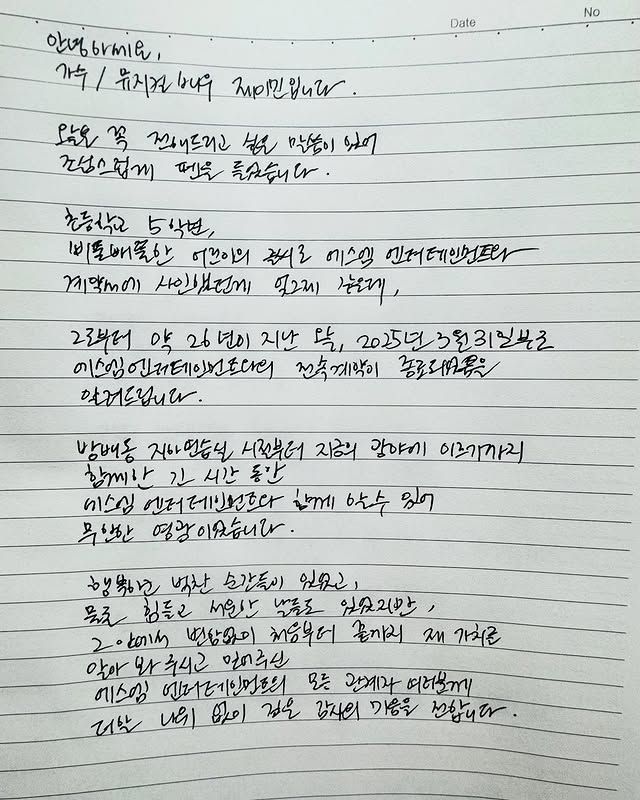 Date
No
안녕하세요,
가수 / 뮤지컬 배우 제이민입니다.
오늘은 꼭 전해드리고 싶은 말씀이 있어
조심스럽게 펜을 들었습니다.
초등학교 5학년,
삐뚤빼뚤한 어린이의 글씨로 에스엠 엔터테인먼트와
계약서에 사인했던게 엊그제 같은데,
그로부터 약 26년이 지난 오늘, 2025년 3월 31일부로
에스엠 엔터테인먼트와의 전속계약이 종료되었음을
알려드립니다.
방배동 지하연습실 시절부터 지금의 광야에 이르기까지
함께한 긴 시간 동안
에스엠 엔터테인먼트와 함께 할 수 있어
무한한 영광이었습니다.
행복하고 벅찬 순간들이 있었고,
때로 힘들고 서운한 날들도 있었지만,
그 안에서 변함없이 처음부터 끝까지 제 가치를
알아 봐 주시고 믿어주신
에스엠 엔터테인먼트의 모든 관계자 여러분께
더할 나위 없이 깊은 감사의 마음을 전합니다.